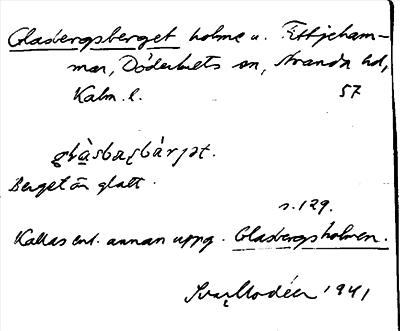 Glasbergsberget holme u. Ettjeham-
mar, Döderhults sn, Stranda hd,
Kalm. l. 57
Berget är glatt.
s. 129.
Kallas enl. annan uppg. Glasbergsholmen.
Ivar Modéer 1941